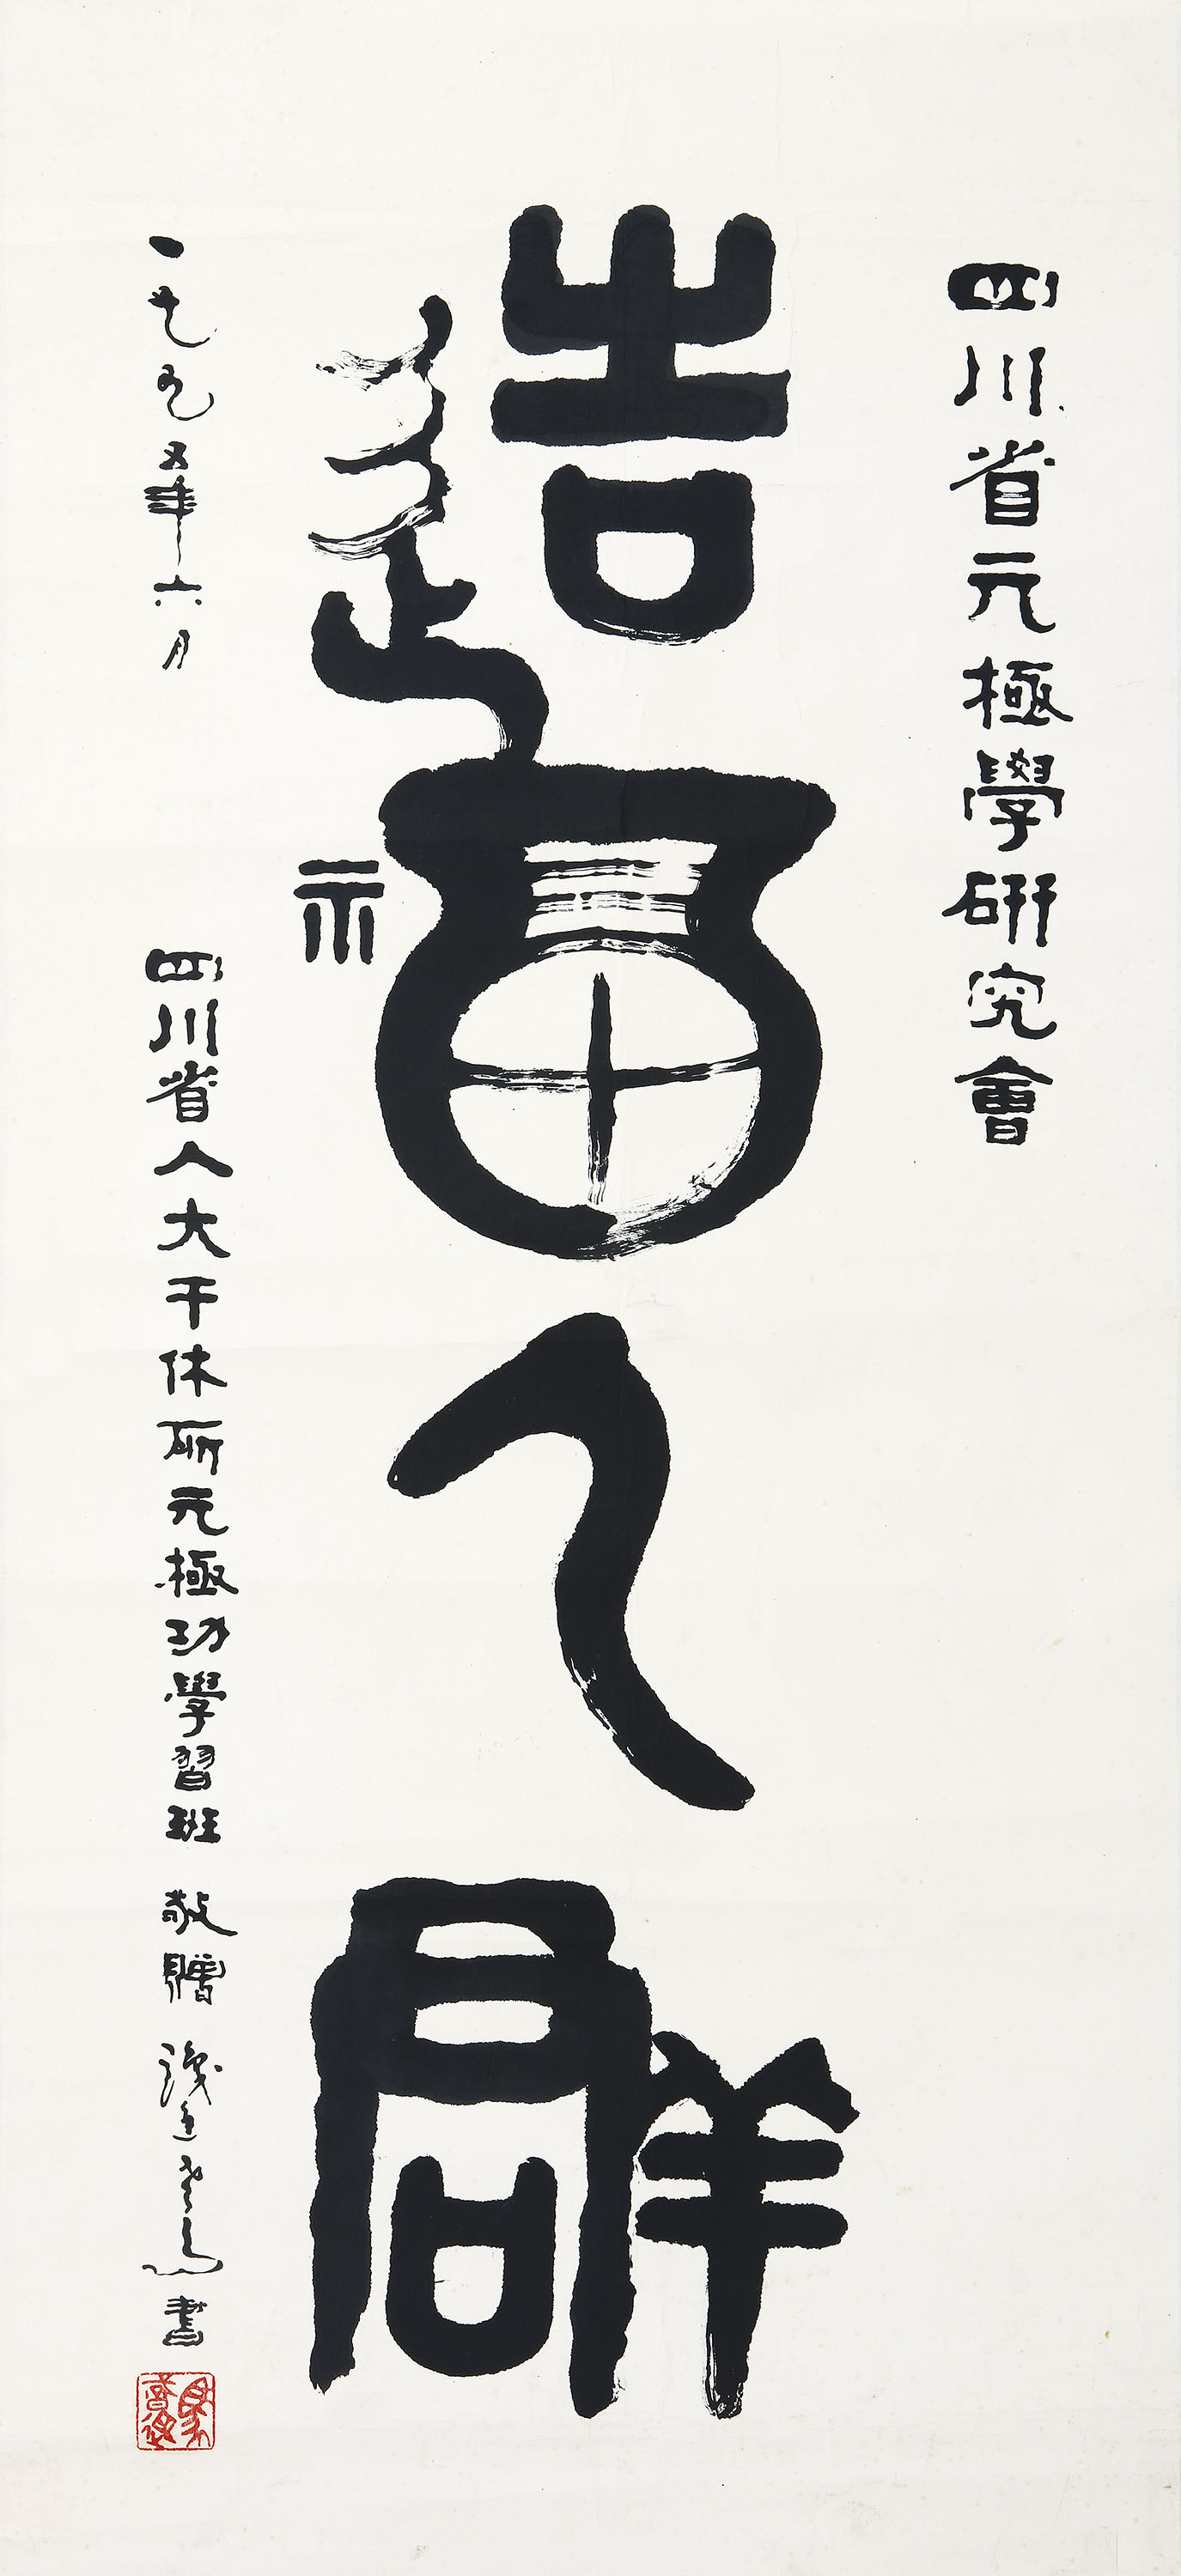 四川省元極學研究會
造福人群
一九九五年六月
四川省人大干休所元極功學習班 敬贈
書